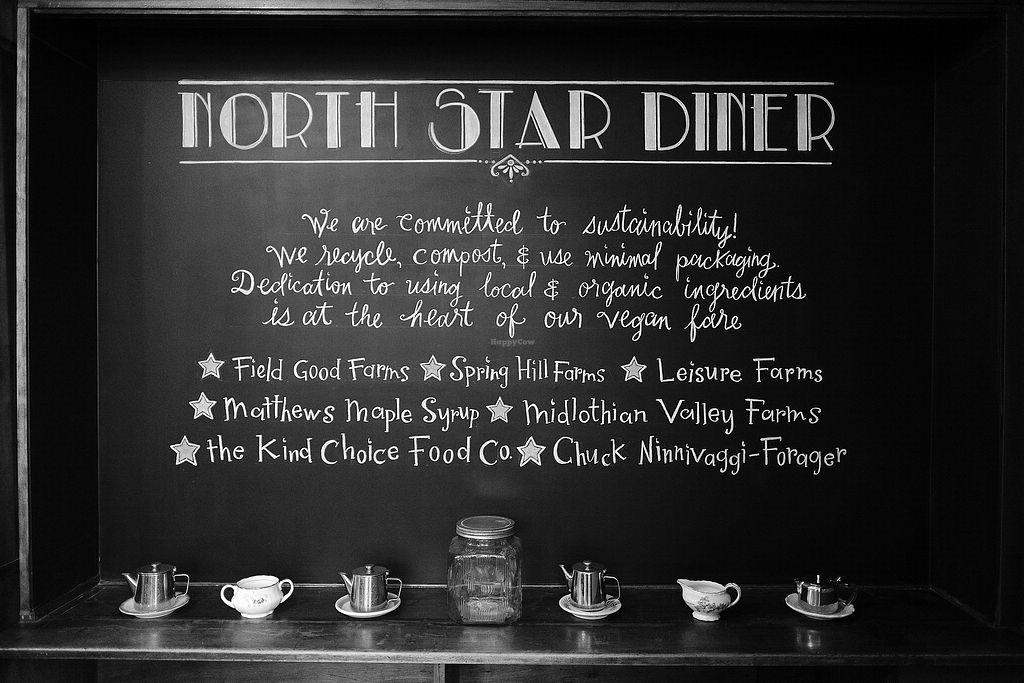 NORTH STAR DINER
We are committed to sustainability!
We recycle, compost, & use minimal packaging.
Dedication to using local & organic ingredients
is at the heart of our vegan fare
HappyCow
☆ Field Good Farms ☆ Spring Hill Farms ☆ Leisure Farms
☆ Matthews Maple Syrup ☆ Midlothian Valley Farms
☆ the Kind Choice Food Co. ☆ Chuck Ninnivaggi-Forager